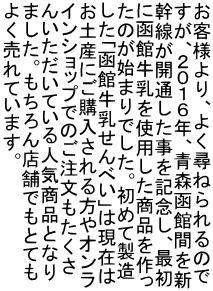 お客様より、よく尋ねられるので
すが、２０１６年、青森函館間を新
幹線が開通した事を記念し、最初
に函館牛乳を使用した商品を作っ
たのが始まりでした。初めて製造
した「函館牛乳せんべい」は現在は
お土産にご購入される方やオンラ
インショップでのご注文もたくさ
んいただいている人気商品となり
ました。もちろん店舗でもとても
よく売れています。